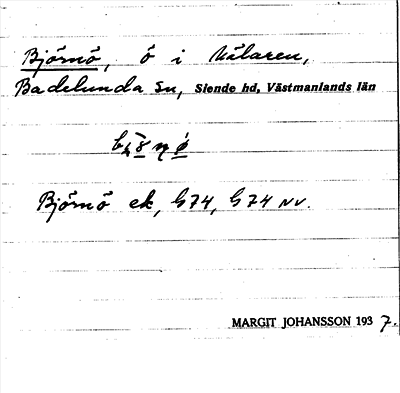 Björnö, ö i Mälaren,
Badelunda sn, Siende hd, Västmanlands län
Björnö ek, G74, G74 NV.
MARGIT JOHANSSON 1937.